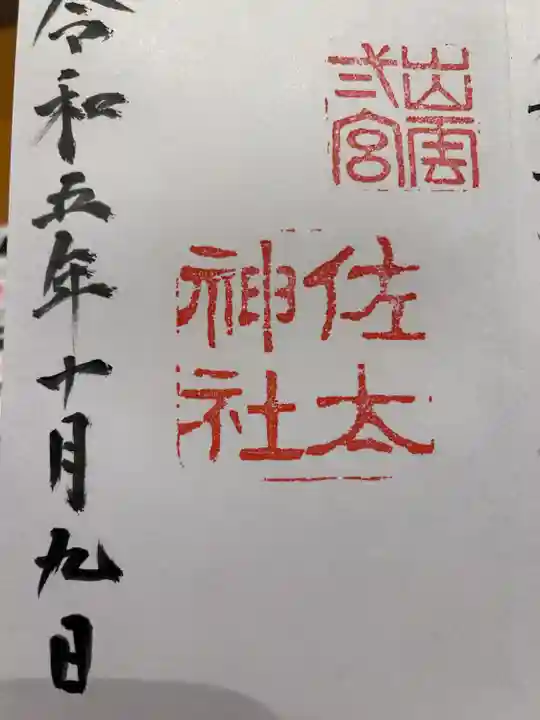 出雲
弍宮
佐太
神社
令和五年十月九日